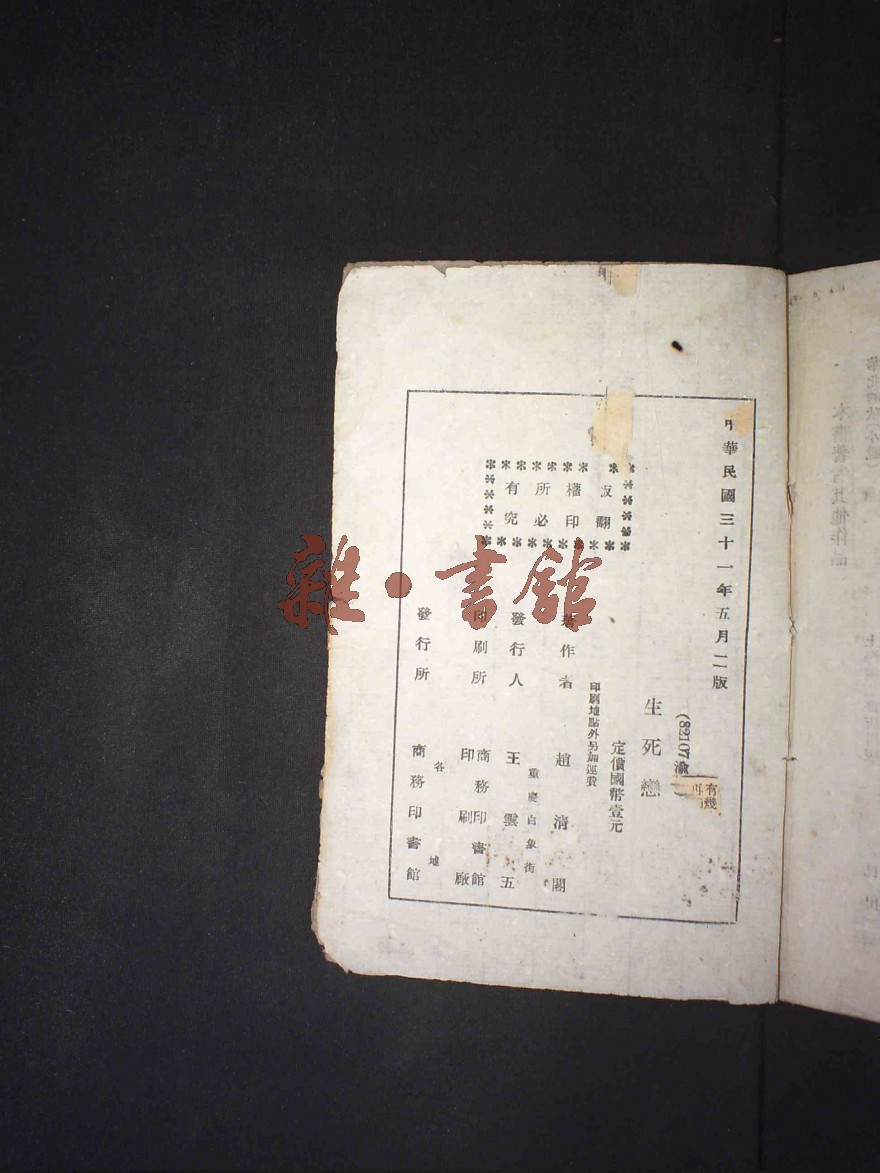 中華民國三十一年五月二版
(82107渝
有幾
生死戀
定價國幣壹元
印刷地點外另加運費
版權所有
翻印必究
著作者 趙清閣
發行人 王雲五
重慶白象街
印刷所 商務印書館印刷廠
發行所 各地 商務印書館
雜·書館